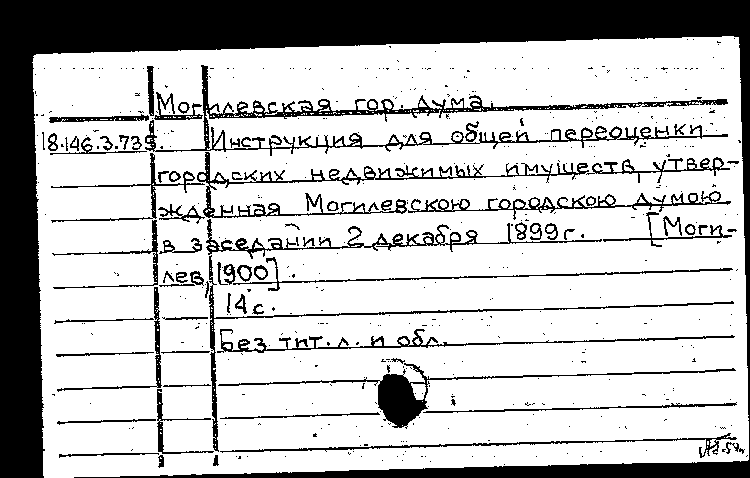 Могилевская гор. дума.
18.146.3.735. Инструкция для общей переоценки
городских недвижимых имуществ, утвер-
жденная Могилевскою городскою думою
в заседании 2 декабря 1899 г. [Моги-
лев, 1900].
14 с.
Без тит. л. и обл.